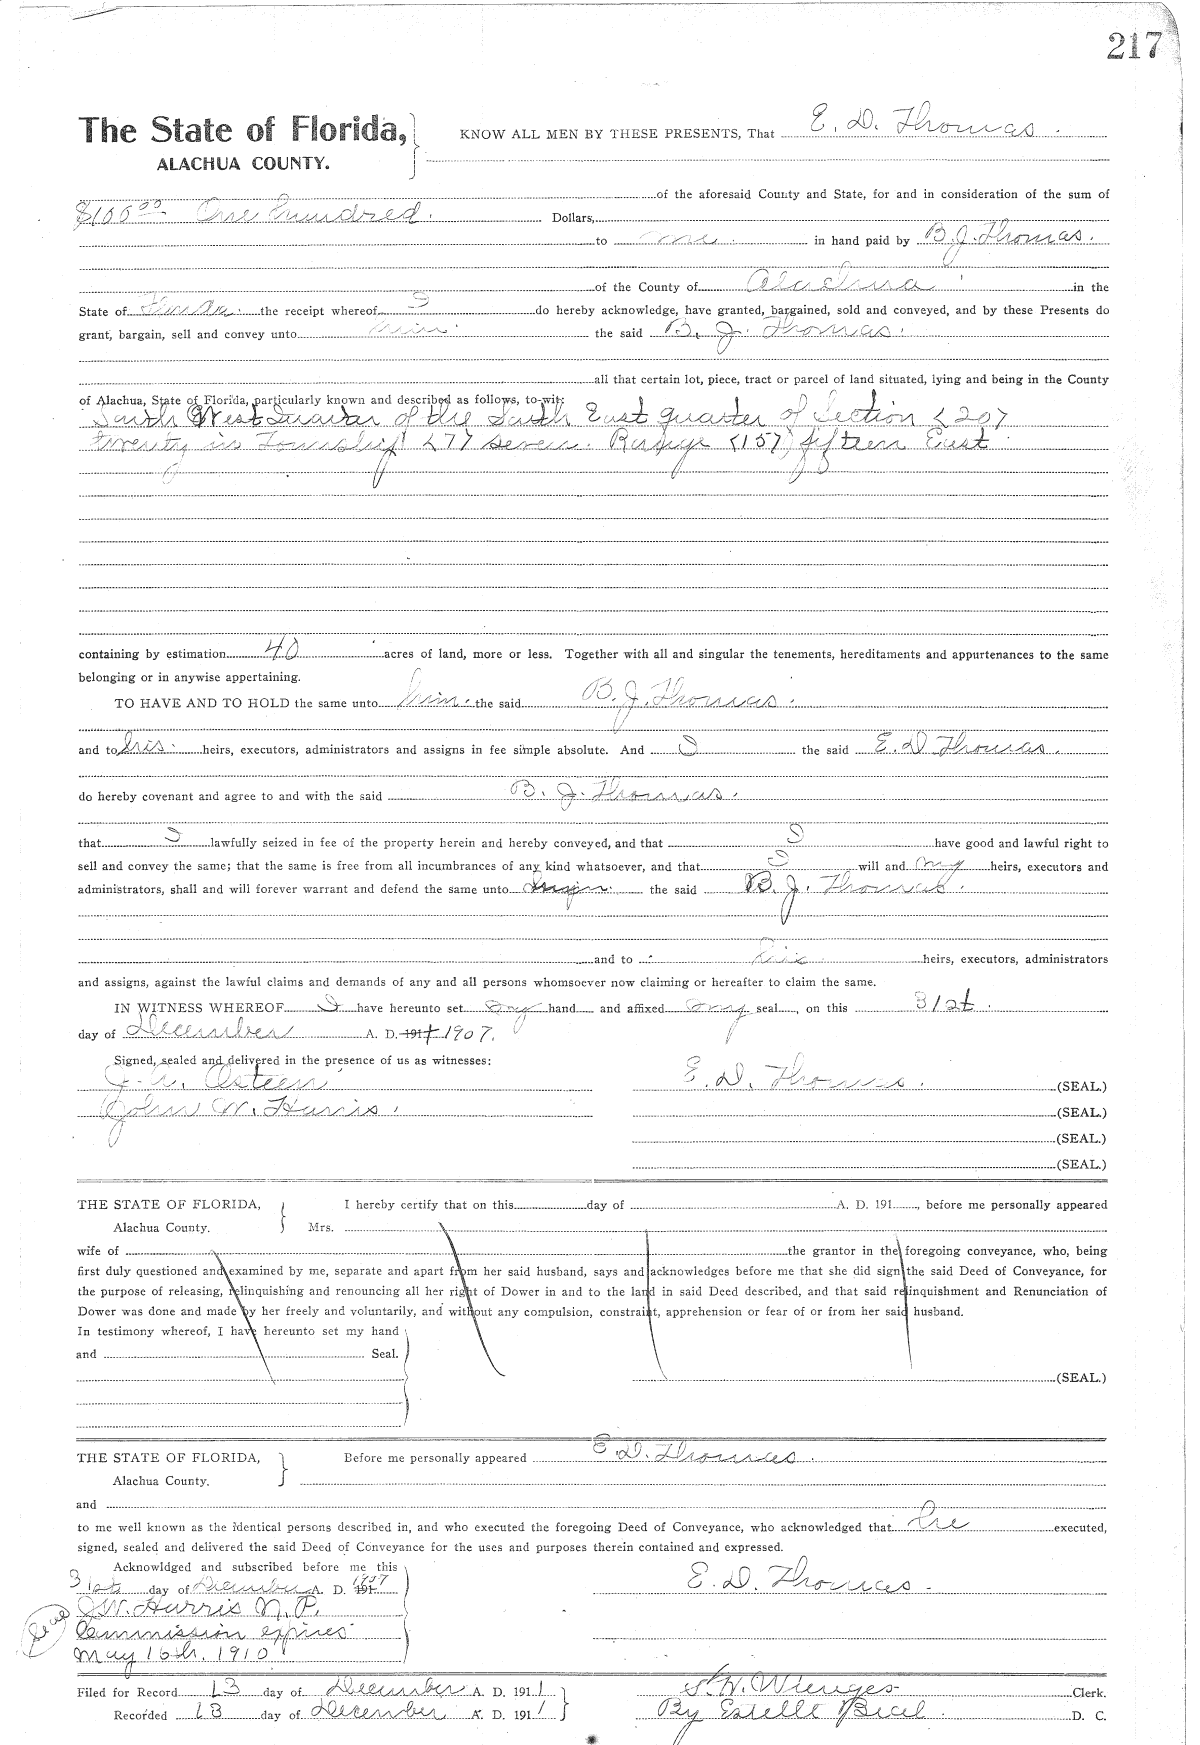 217
The State of Florida, KNOW ALL MEN BY THESE PRESENTS, That E. D. Thomas.
ALACHUA COUNTY.
of the aforesaid County and State, for and in consideration of the sum of
$100 00 One hundred. Dollars,
to me. in hand paid by B. J. Thomas.
of the County of Alachua in the
State of Florida. the receipt whereof I do hereby acknowledge, have granted, bargained, sold and conveyed, and by these Presents do
grant, bargain, sell and convey unto him the said B. J. Thomas.
all that certain lot, piece, tract or parcel of land situated, lying and being in the County
of Alachua, State of Florida, particularly known and described as follows, to-wit:
South West Quarter of the South East quarter of Section <20>
twenty in Township <7> seven. Range <15> fifteen East
containing by estimation 40 acres of land, more or less. Together with all and singular the tenements, hereditaments and appurtenances to the same
belonging or in anywise appertaining.
TO HAVE AND TO HOLD the same unto him. the said B. J. Thomas.
and to his. heirs, executors, administrators and assigns in fee simple absolute. And I the said E. D Thomas.
do hereby covenant and agree to and with the said B. J. Thomas.
that I lawfully seized in fee of the property herein and hereby conveyed, and that I have good and lawful right to
sell and convey the same; that the same is free from all incumbrances of any kind whatsoever, and that I will and my heirs, executors and
administrators, shall and will forever warrant and defend the same unto the said B. J. Thomas.
and to his heirs, executors, administrators
and assigns, against the lawful claims and demands of any and all persons whomsoever now claiming or hereafter to claim the same.
IN WITNESS WHEREOF I have hereunto set my hand and affixed my seal, on this 31st.
day of December A. D. 191 1907.
Signed, sealed and delivered in the presence of us as witnesses:
J. A. Osteen E. D. Thomas. (SEAL.)
John W. Harris. (SEAL.)
(SEAL.)
(SEAL.)
THE STATE OF FLORIDA, I hereby certify that on this day of A. D. 191 , before me personally appeared
Alachua County. Mrs.
wife of the grantor in the foregoing conveyance, who, being
first duly questioned and examined by me, separate and apart from her said husband, says and acknowledges before me that she did sign the said Deed of Conveyance, for
the purpose of releasing, relinquishing and renouncing all her right of Dower in and to the land in said Deed described, and that said relinquishment and Renunciation of
Dower was done and made by her freely and voluntarily, and without any compulsion, constraint, apprehension or fear of or from her said husband.
In testimony whereof, I have hereunto set my hand
and Seal.
(SEAL.)
THE STATE OF FLORIDA, Before me personally appeared E. D. Thomas.
Alachua County.
and
to me well known as the identical persons described in, and who executed the foregoing Deed of Conveyance, who acknowledged that he executed,
signed, sealed and delivered the said Deed of Conveyance for the uses and purposes therein contained and expressed.
Acknowldged and subscribed before me this
31st day of December A. D. 191 1907 E. D. Thomas.
J. W. Harris N. P.
Commission expires
May 16th. 1910
Filed for Record 13 day of December A. D. 1911 S. H. Wienges Clerk.
Recorded 13 day of December A. D. 1911 By Estelle Beal. D. C.